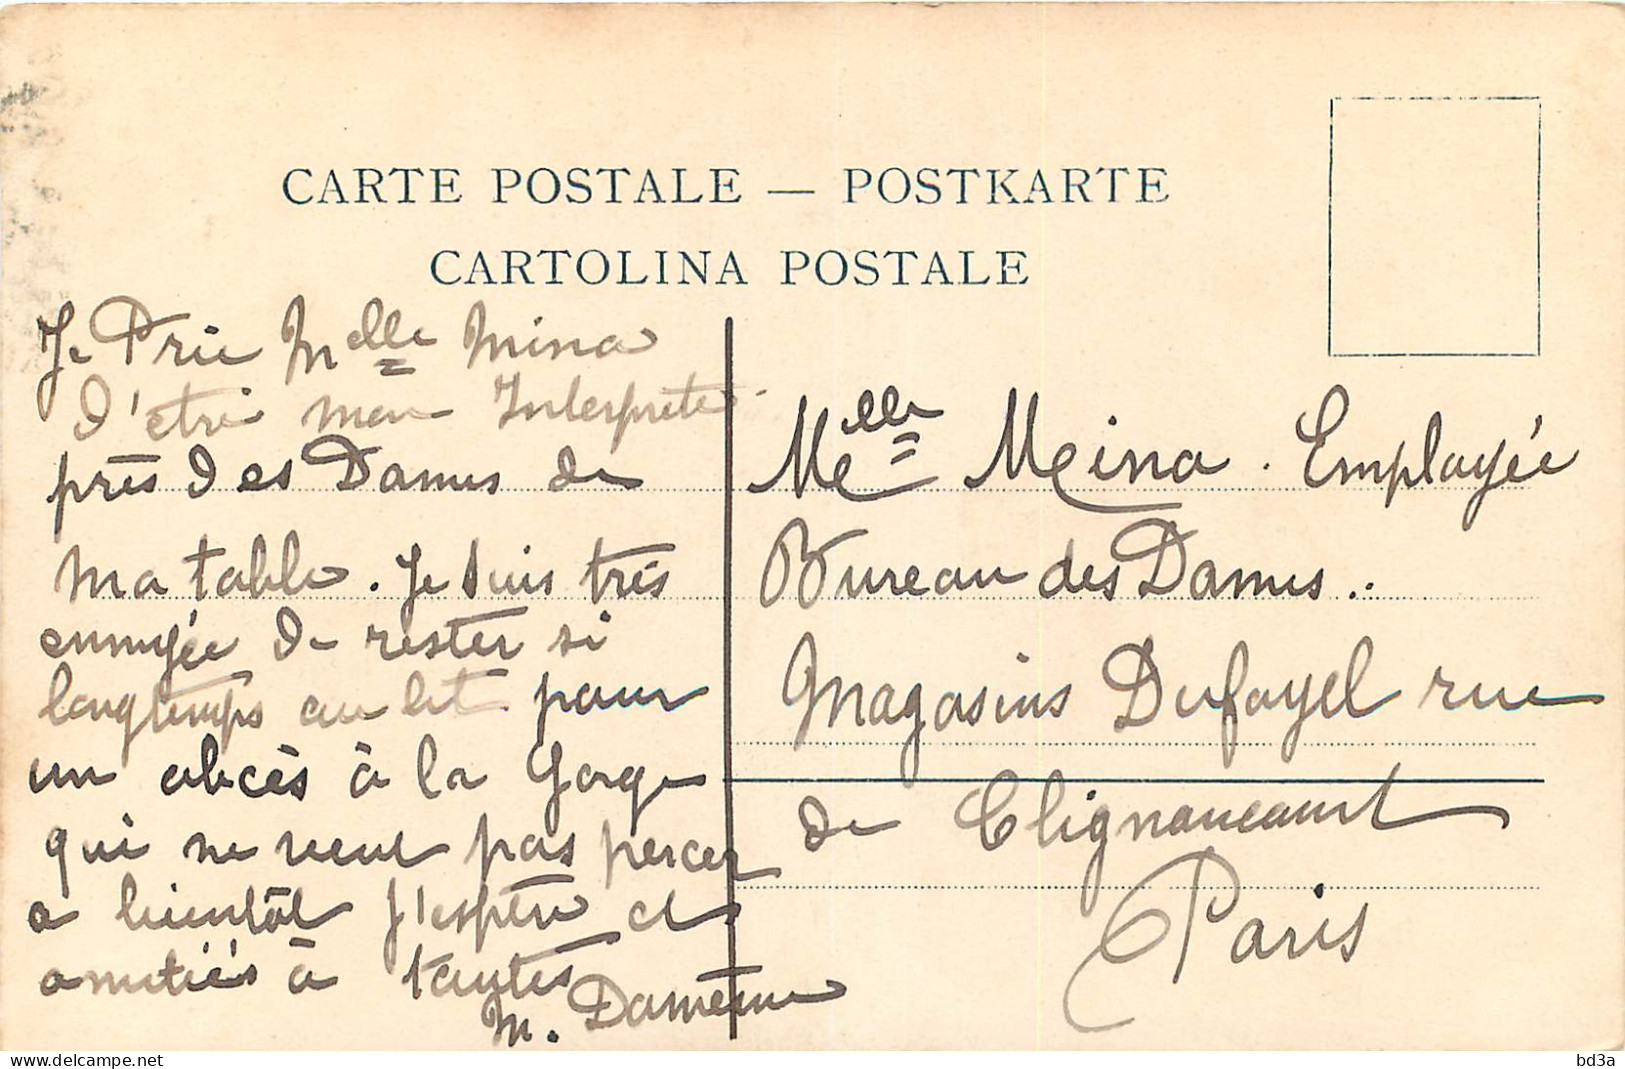 CARTE POSTALE — POSTKARTE
CARTOLINA POSTALE
Je Prie Melle Mina
d'être mon Interprète
près des Dames de
ma table. Je suis très
ennuyée de rester si
longtemps au lit pour
un abcès à la Gorge
qui ne veut pas percer
a bientôt j'espère et
amitiés à toutes
M.
Melle Meina. Employée
Bureau des Dames.
Magasins Dufayel rue
de Clignancourt
Paris
www.delcampe.net
bd3a